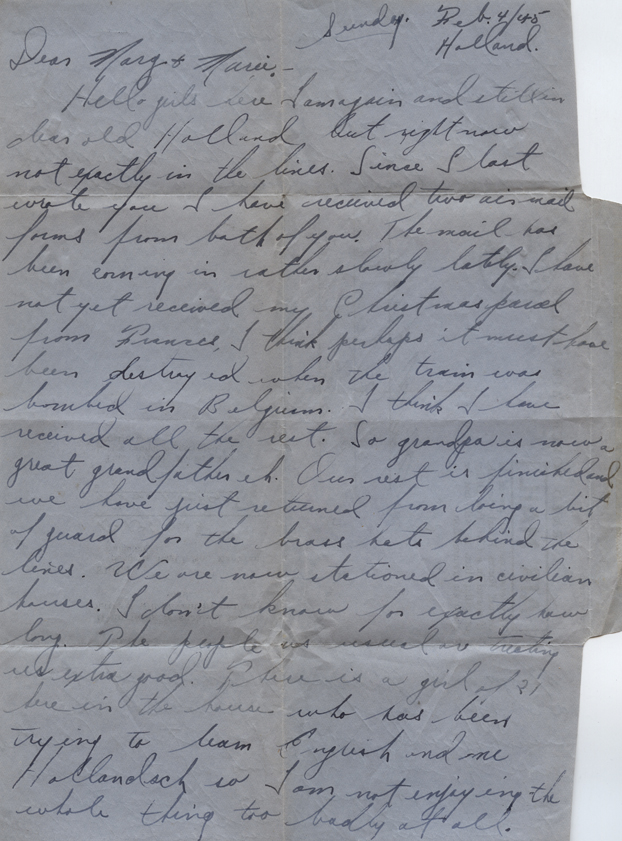 Sunday. Feb. 4/45
Holland.
Dear Marg & Marie:-
Hello girls here I am again and still in
dear old Holland but right now
not exactly in the lines. Since I last
wrote you I have received two air mail
forms from both of you. The mail has
been coming in rather slowly lately. I have
not yet received my Christmas parcel
from Frances, I think perhaps it must have
been destroyed when the train was
bombed in Belgium. I think I have
received all the rest. So grandpa is now a
great grandfather eh. Our rest is finished and
we have just returned from doing a bit
of guard for the brass hats behind the
lines. We are now stationed in civilian
houses. I don't know for exactly how
long. The people as usual are treating
us extra good. There is a girl of 21
here in the house who has been
trying to learn English and me
Hollandsch so I am not enjoying the
whole thing too badly at all.